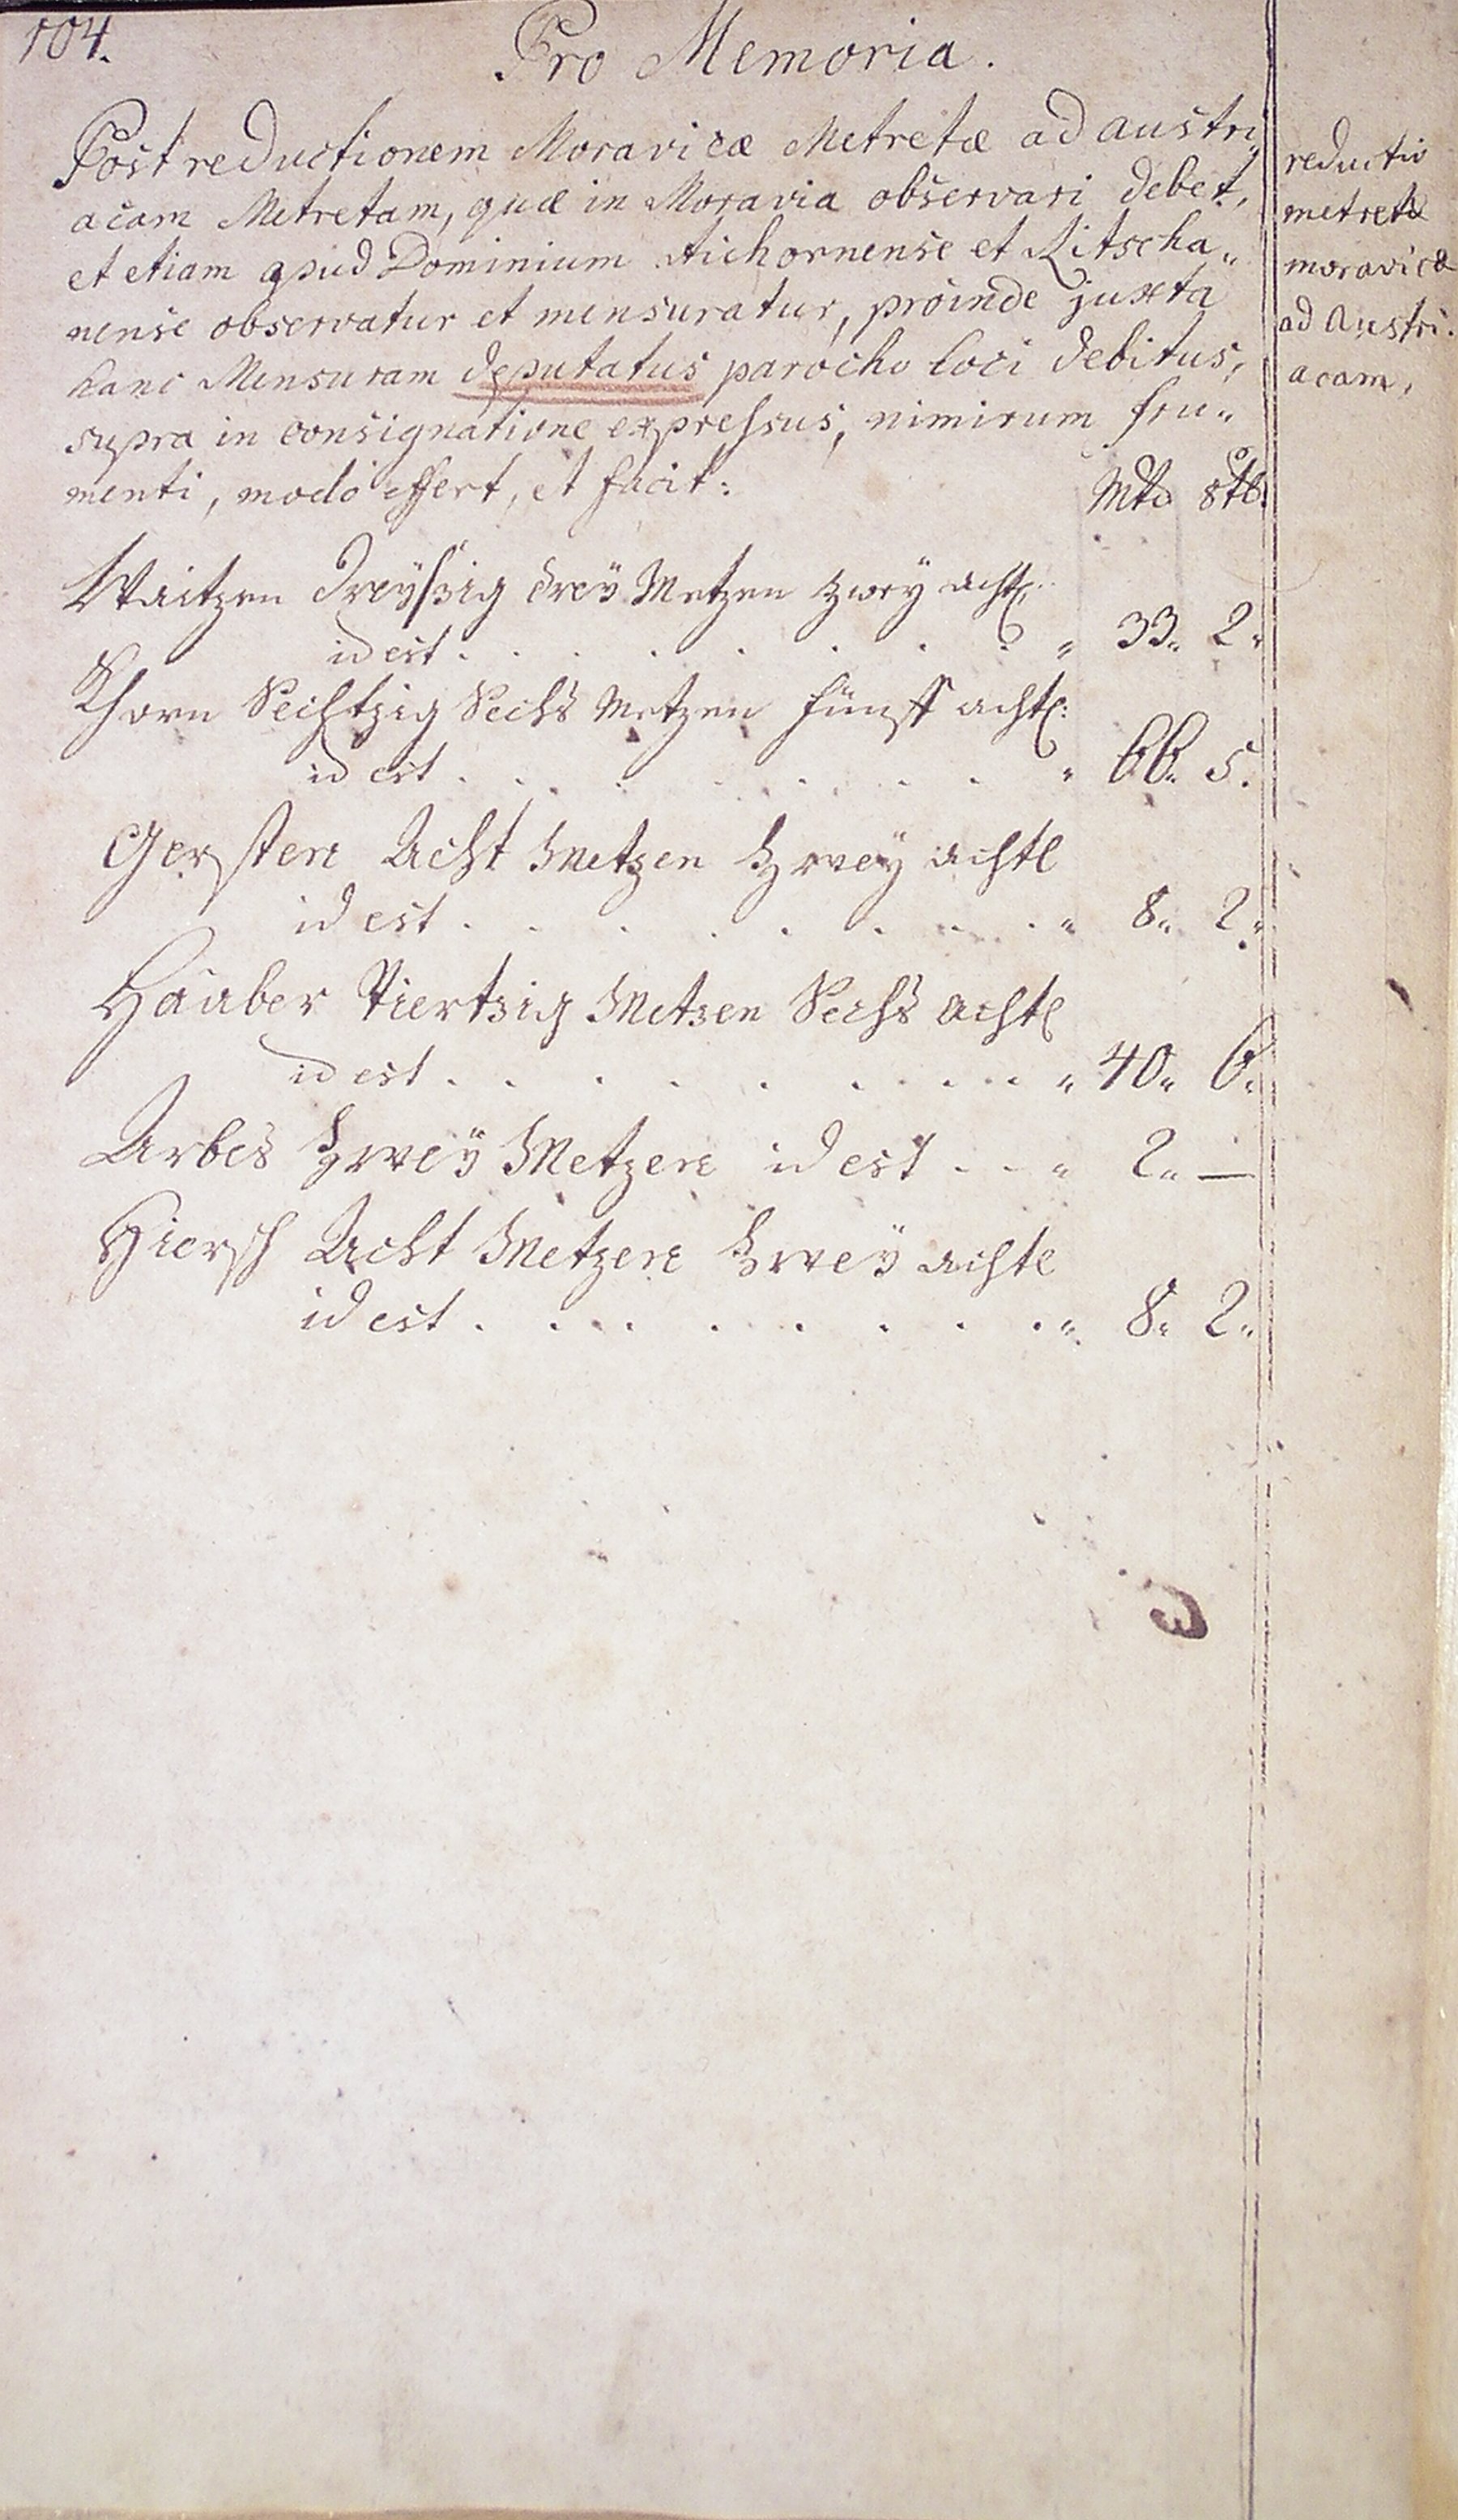 104.
Pro Memoria.
Post reductionem Moravicæ Metretæ ad austri„
acam Metretam, quæ in Moravia observari debet,
et etiam apud Dominium Aichornense et Ritscha„
nense observatur et mensuratur, proinde juxta
hanc Mensuram deputatus parocho loci debitus,
supra in consignatione expressus, nimirum fru„
menti, modo effert, et facit:
Mtz 8tl.
Waitzen Dreyßig drey Metzen zwey achtl:
id est . . . . . . . . „ 33„ 2„
Khorn Sechtzig Sechs Metzen fünff achtl:
id est . . . . . . . . „ 66„ 5.
Gersten Acht Metzen Zwey achtl
id est . . . . . . . . „ 8„ 2„
Haaber Viertzig Metzen Sechs achtl
id est . . . . . . . . „ 40„ 6„
Arbes Zweÿ Metzen id est . . „ 2„ —
Hiersch Acht Metzen Zweÿ achtl
id est . . . . . . . . „ 8„ 2„
reductio
metretæ
moravicæ
ad Austri.
acam,